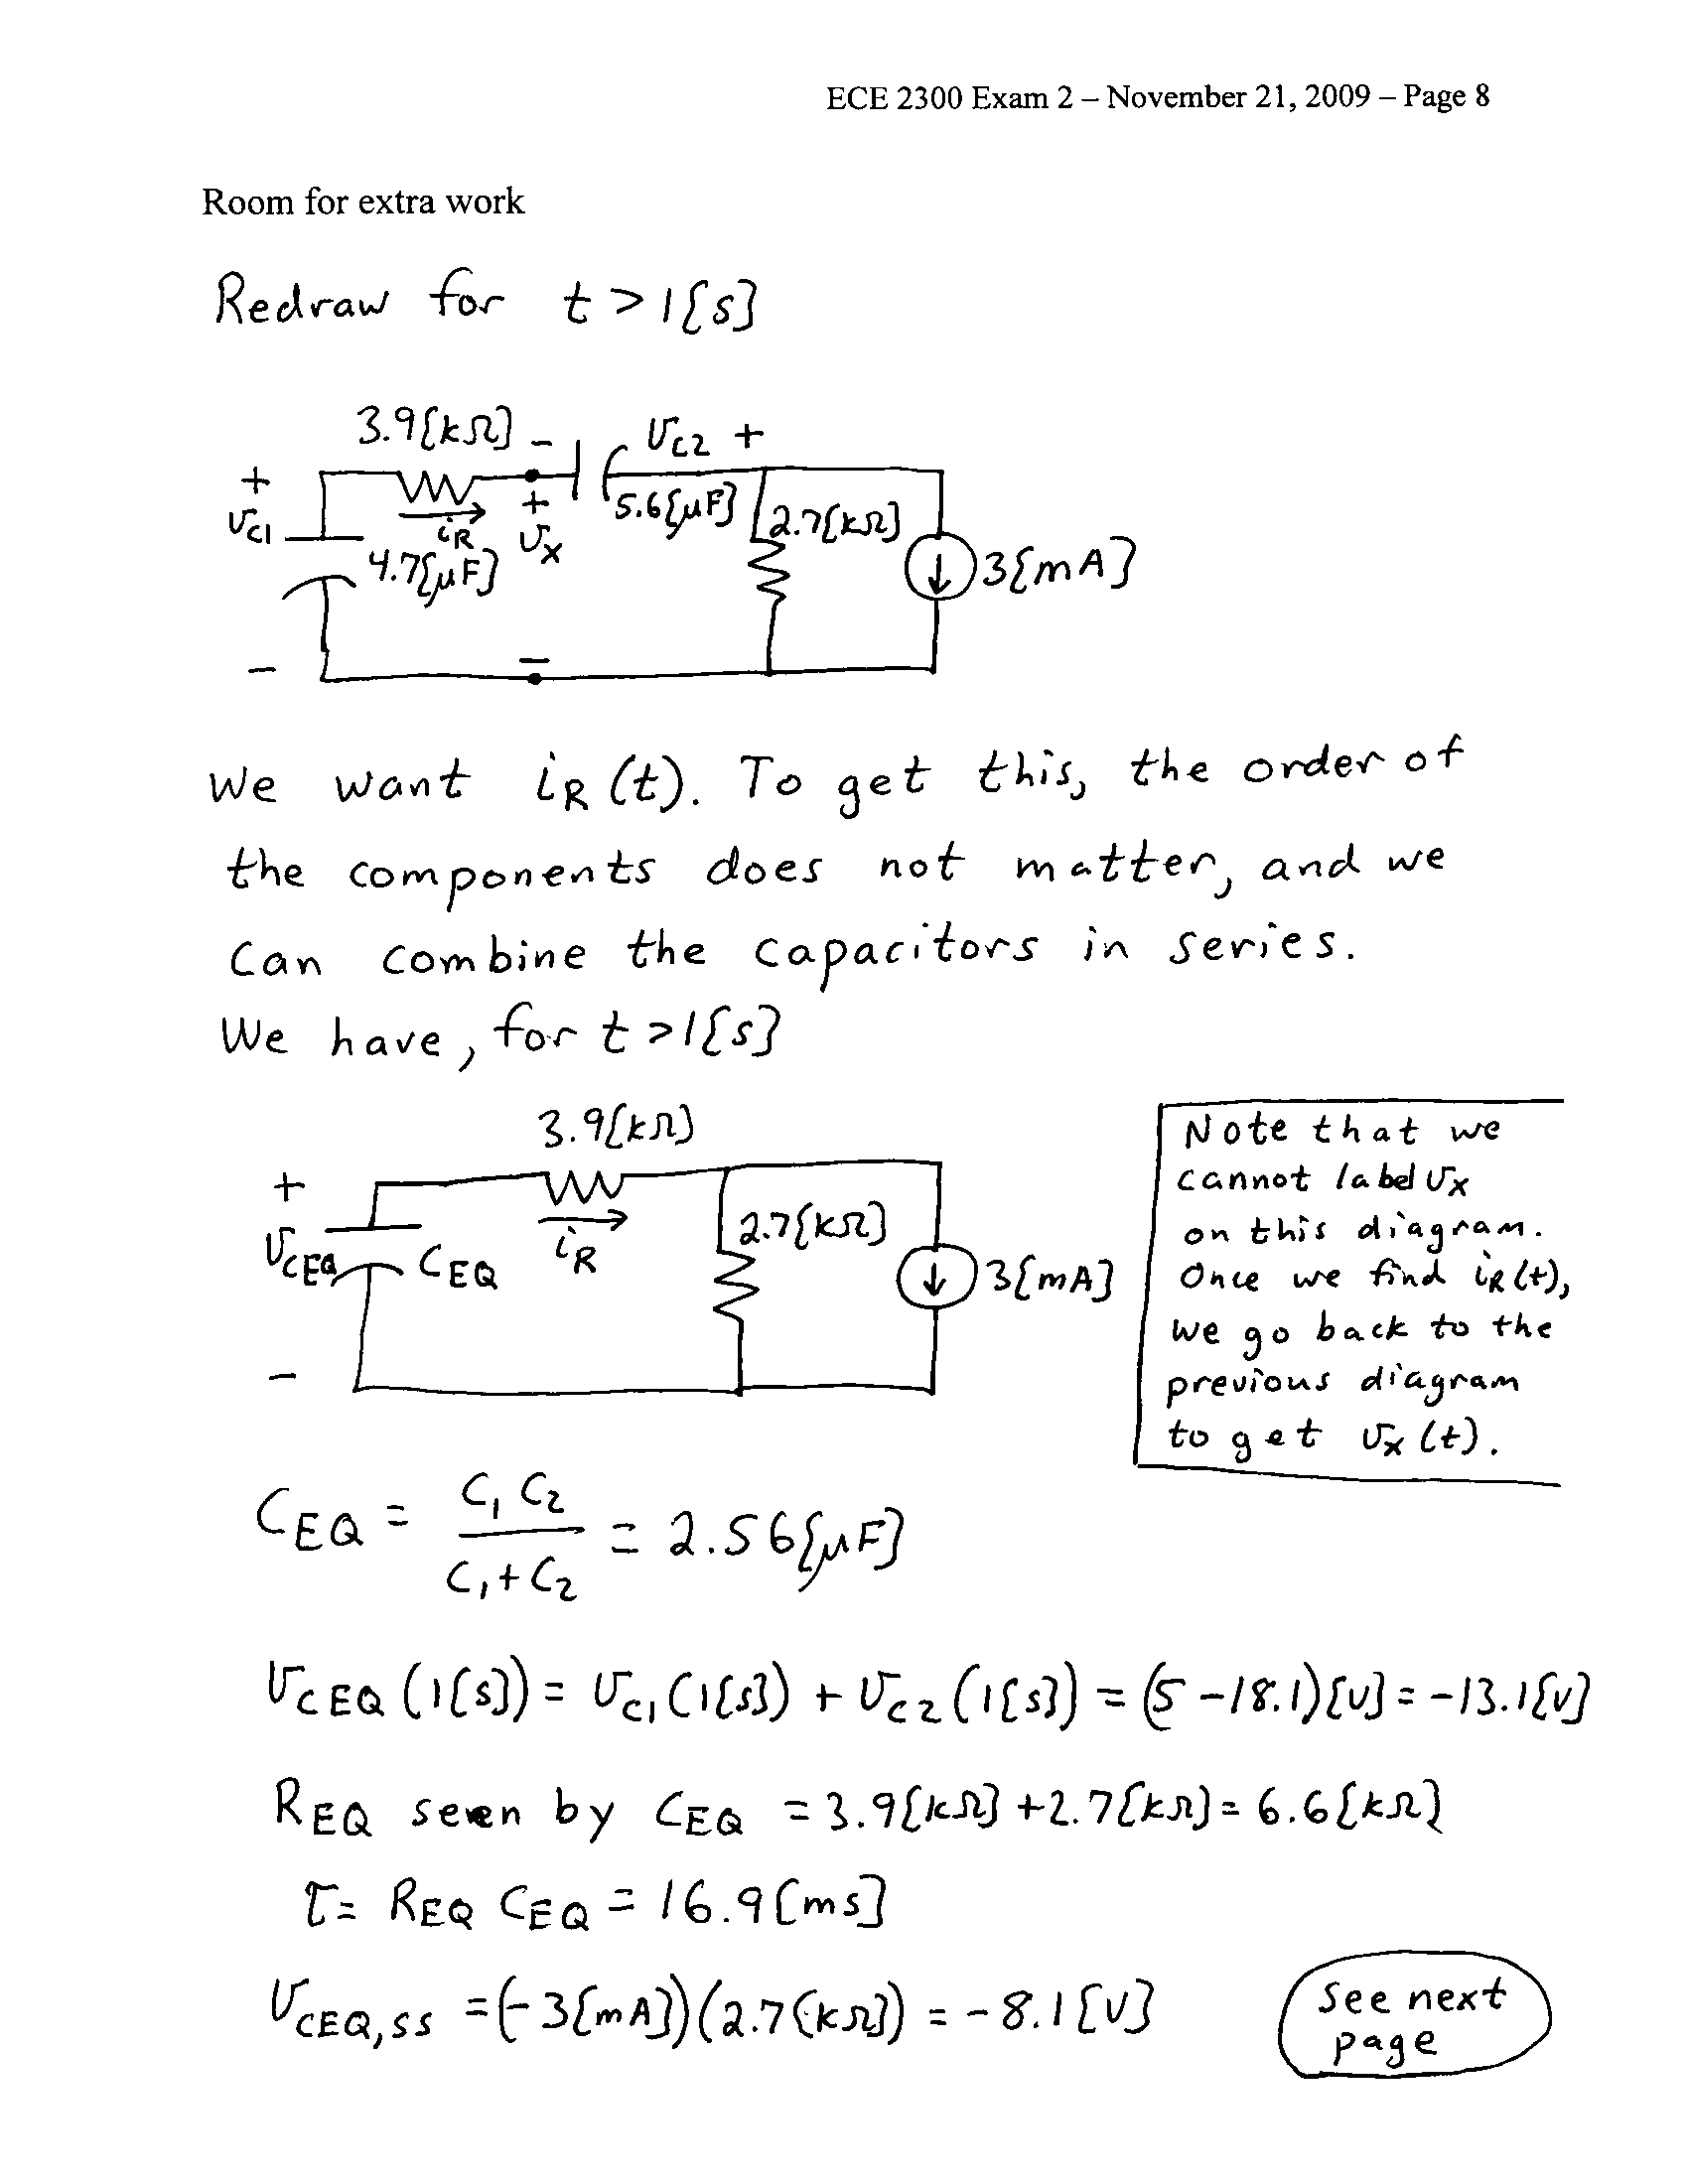 ECE 2300 Exam 2 – November 21, 2009 – Page 8
Room for extra work
Redraw for t > 1[s]
3.9[kΩ] − v_C2 +
+ v_C1 −
i_R
+ v_X −
4.7[μF]
5.6[μF]
2.7[kΩ]
3[mA]
We want i_R(t). To get this, the order of
the components does not matter, and we
can combine the capacitors in series.
We have, for t > 1[s]
3.9[kΩ]
+ v_CEQ −
C_EQ
i_R
2.7[kΩ]
3[mA]
Note that we
cannot label v_X
on this diagram.
Once we find i_R(t),
we go back to the
previous diagram
to get v_X(t).
C_EQ = C_1 C_2 / (C_1 + C_2) = 2.56[μF]
v_CEQ(1[s]) = v_C1(1[s]) + v_C2(1[s]) = (5 − 18.1)[v] = −13.1[v]
R_EQ seen by C_EQ = 3.9[kΩ] + 2.7[kΩ] = 6.6[kΩ]
τ = R_EQ C_EQ = 16.9[ms]
v_CEQ,SS = (−3[mA])(2.7[kΩ]) = −8.1[V]
See next
page